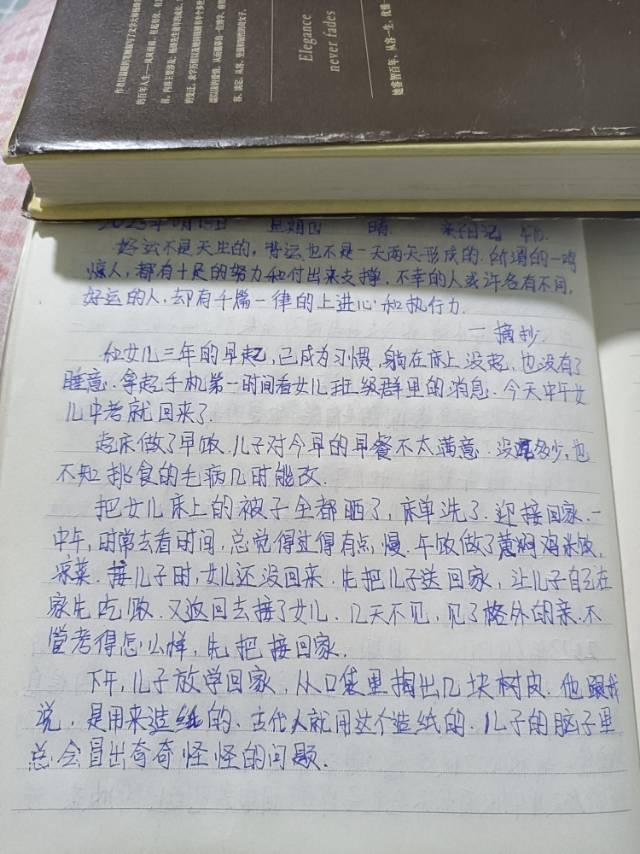 Elegance
never fades
她睿智百年，从容一生，优雅
2023年6月15日 星期四 晴
好运不是天生的，背运也不是一天两天形成的.所谓的一鸣
惊人，都有十足的努力和付出来支撑，不幸的人或许各有不同，
好运的人，却有千篇一律的上进心和执行力.
—摘抄.
和女儿三年的早起，已成为习惯，躺在床上没起，也没有了
睡意.拿起手机第一时间看女儿班级群里的消息.今天中午女
儿中考就回来了.
起床做了早饭.儿子对今早的早餐不太满意.没吃多少，也
不知挑食的毛病几时能改.
把女儿床上的被子全都晒了，床单洗了.迎接回家.一
中午，时常去看时间，总觉得过得有点慢.午饭做了黄焖鸡米饭，
菜.接儿子时，女儿还没回来.先把儿子送回家，让儿子自己在
家先吃饭.又返回去接了女儿.几天不见，见了格外的亲.不
管考得怎么样，先把接回家.
下午，儿子放学回家，从口袋里掏出几块树皮.他跟我
说，是用来造纸的.古代人就用这个造纸的.儿子的脑子里
总会冒出奇奇怪怪的问题.